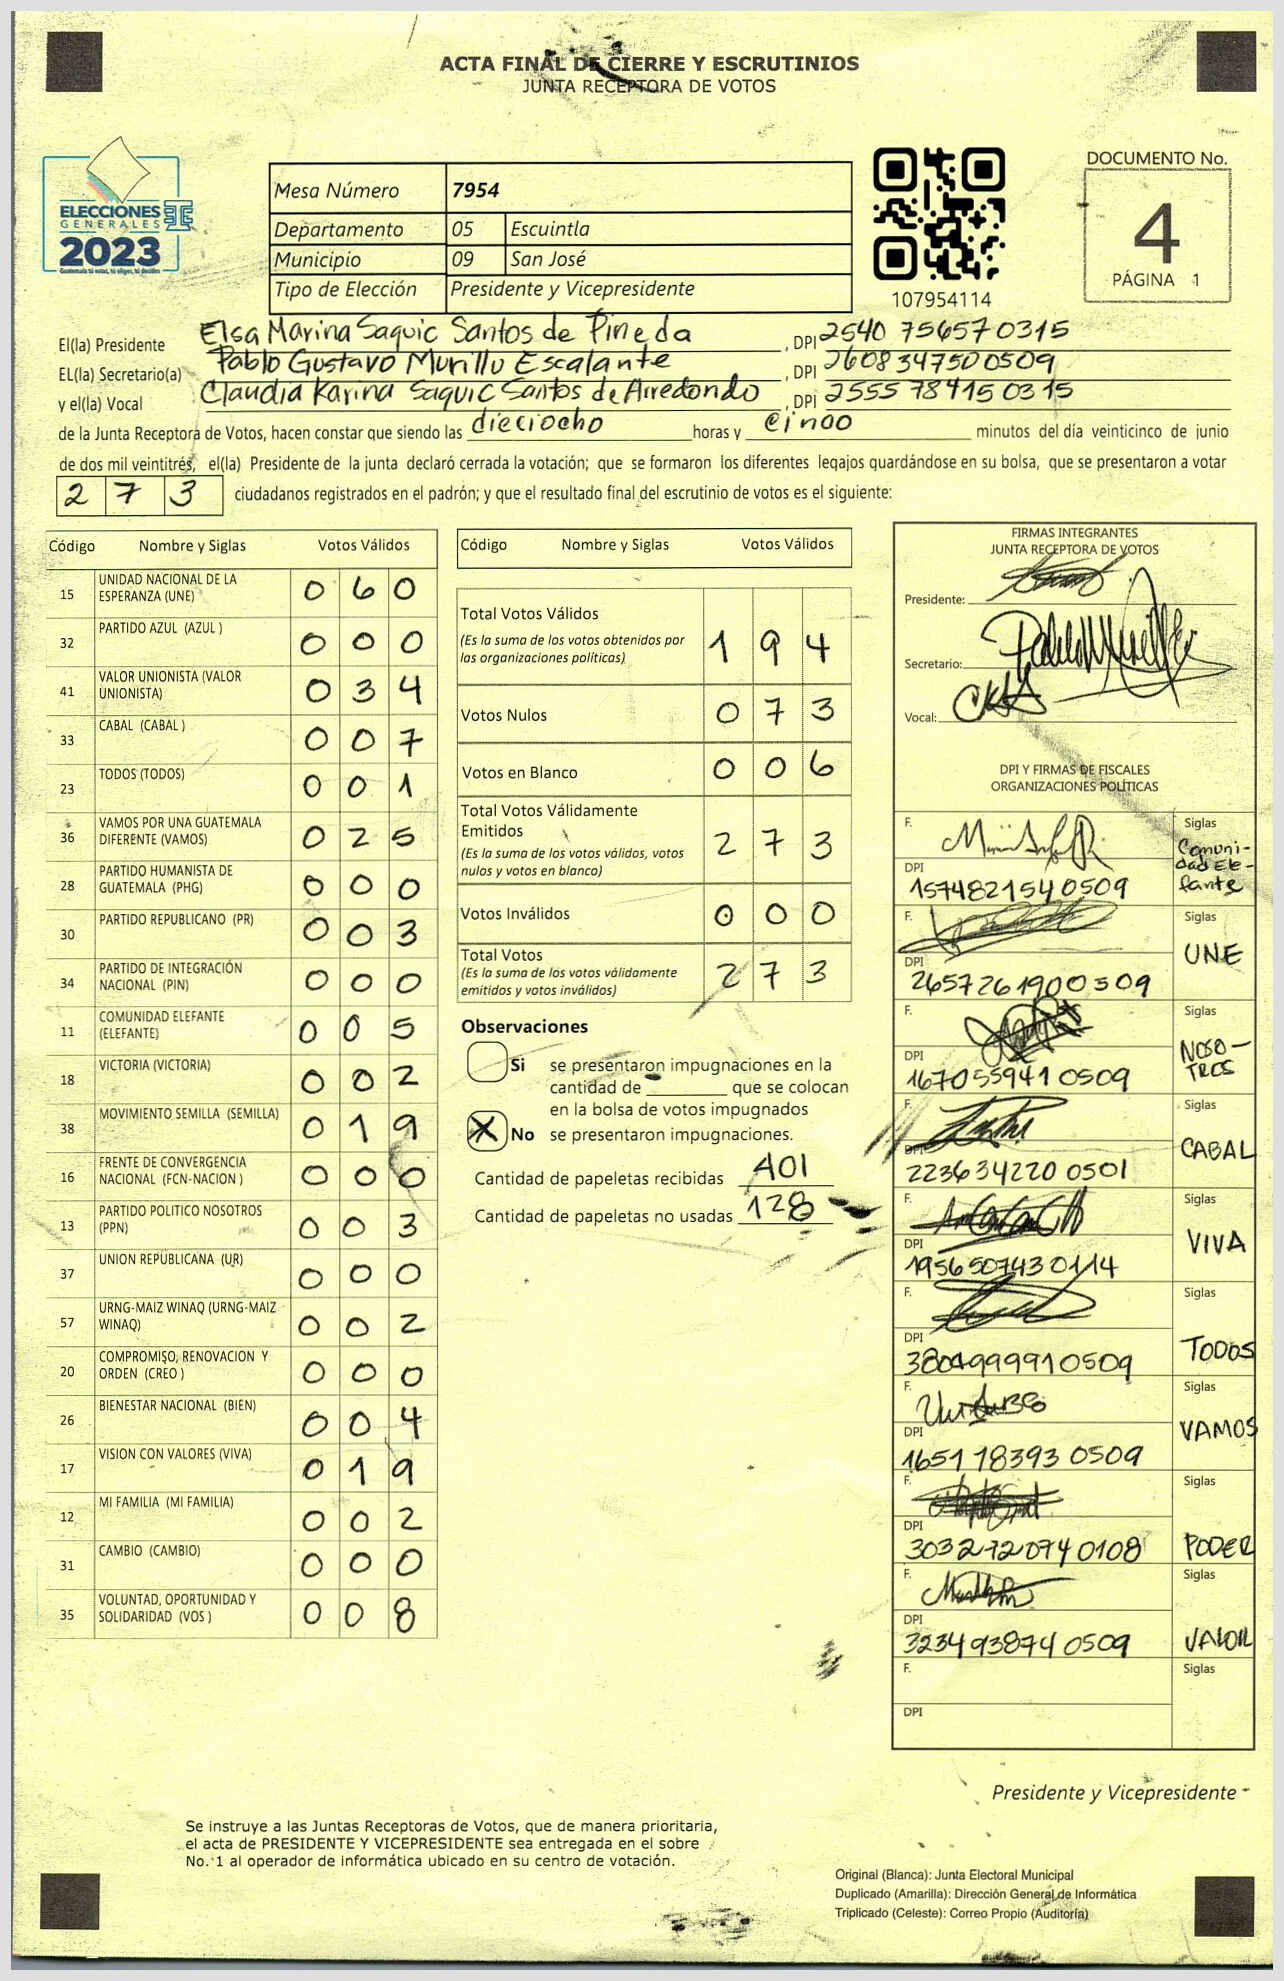 ACTA FINAL DE CIERRE Y ESCRUTINIOS
JUNTA RECEPTORA DE VOTOS
ELECCIONES
GENERALES
2023
Guatemala tú votas, tú eliges, tú decides
Mesa Número 7954
Departamento 05 Escuintla
Municipio 09 San José
Tipo de Elección Presidente y Vicepresidente
107954114
DOCUMENTO No.
4
PÁGINA 1
El(la) Presidente Elsa Marina Saquic Santos de Pineda, DPI 2540 75657 0315
EL(la) Secretario(a) Pablo Gustavo Murillo Escalante, DPI 2608 34750 0509
y el(la) Vocal Claudia Karina Saquic Santos de Arredondo, DPI 2555 78415 0315
de la Junta Receptora de Votos, hacen constar que siendo las dieciocho horas y cinco minutos del día veinticinco de junio
de dos mil veintitrés, el(la) Presidente de la junta declaró cerrada la votación; que se formaron los diferentes legajos guardándose en su bolsa, que se presentaron a votar
273 ciudadanos registrados en el padrón; y que el resultado final del escrutinio de votos es el siguiente:
Código Nombre y Siglas Votos Válidos
15 UNIDAD NACIONAL DE LA ESPERANZA (UNE) 0 6 0
32 PARTIDO AZUL (AZUL ) 0 0 0
41 VALOR UNIONISTA (VALOR UNIONISTA) 0 3 4
33 CABAL (CABAL ) 0 0 7
23 TODOS (TODOS) 0 0 1
36 VAMOS POR UNA GUATEMALA DIFERENTE (VAMOS) 0 2 5
28 PARTIDO HUMANISTA DE GUATEMALA (PHG) 0 0 0
30 PARTIDO REPUBLICANO (PR) 0 0 3
34 PARTIDO DE INTEGRACIÓN NACIONAL (PIN) 0 0 0
11 COMUNIDAD ELEFANTE (ELEFANTE) 0 0 5
18 VICTORIA (VICTORIA) 0 0 2
38 MOVIMIENTO SEMILLA (SEMILLA) 0 1 9
16 FRENTE DE CONVERGENCIA NACIONAL (FCN-NACION ) 0 0 0
13 PARTIDO POLITICO NOSOTROS (PPN) 0 0 3
37 UNION REPUBLICANA (UR) 0 0 0
57 URNG-MAIZ WINAQ (URNG-MAIZ WINAQ) 0 0 2
20 COMPROMISO, RENOVACION Y ORDEN (CREO ) 0 0 0
26 BIENESTAR NACIONAL (BIEN) 0 0 4
17 VISION CON VALORES (VIVA) 0 1 9
12 MI FAMILIA (MI FAMILIA) 0 0 2
31 CAMBIO (CAMBIO) 0 0 0
35 VOLUNTAD, OPORTUNIDAD Y SOLIDARIDAD (VOS ) 0 0 8
Código Nombre y Siglas Votos Válidos
Total Votos Válidos 1 9 4
(Es la suma de los votos obtenidos por
las organizaciones políticas)
Votos Nulos 0 7 3
Votos en Blanco 0 0 6
Total Votos Válidamente
Emitidos 2 7 3
(Es la suma de los votos válidos, votos
nulos y votos en blanco)
Votos Inválidos 0 0 0
Total Votos 2 7 3
(Es la suma de los votos válidamente
emitidos y votos inválidos)
Observaciones
Si se presentaron impugnaciones en la
cantidad de que se colocan
en la bolsa de votos impugnados
X No se presentaron impugnaciones.
Cantidad de papeletas recibidas 401
Cantidad de papeletas no usadas 128
FIRMAS INTEGRANTES
JUNTA RECEPTORA DE VOTOS
Presidente:
Secretario:
Vocal:
DPI Y FIRMAS DE FISCALES
ORGANIZACIONES POLÍTICAS
F. Siglas
Comuni-
dad Ele-
fante
DPI
157482154 0509
F. Siglas
UNE
DPI
265726190 0509
F. Siglas
NOSO-
TROS
DPI
167055941 0509
F. Siglas
CABAL
DPI
223634220 0501
F. Siglas
VIVA
DPI
195650743 0114
F. Siglas
TODOS
DPI
380499991 0509
F. Siglas
VAMOS
DPI
1651 18393 0509
F. Siglas
PODER
DPI
3032 72074 0108
F. Siglas
VALOR
DPI
3234 93874 0509
F. Siglas
DPI
Presidente y Vicepresidente
Se instruye a las Juntas Receptoras de Votos, que de manera prioritaria,
el acta de PRESIDENTE Y VICEPRESIDENTE sea entregada en el sobre
No. 1 al operador de informática ubicado en su centro de votación.
Original (Blanca): Junta Electoral Municipal
Duplicado (Amarilla): Dirección General de Informática
Triplicado (Celeste): Correo Propio (Auditoría)